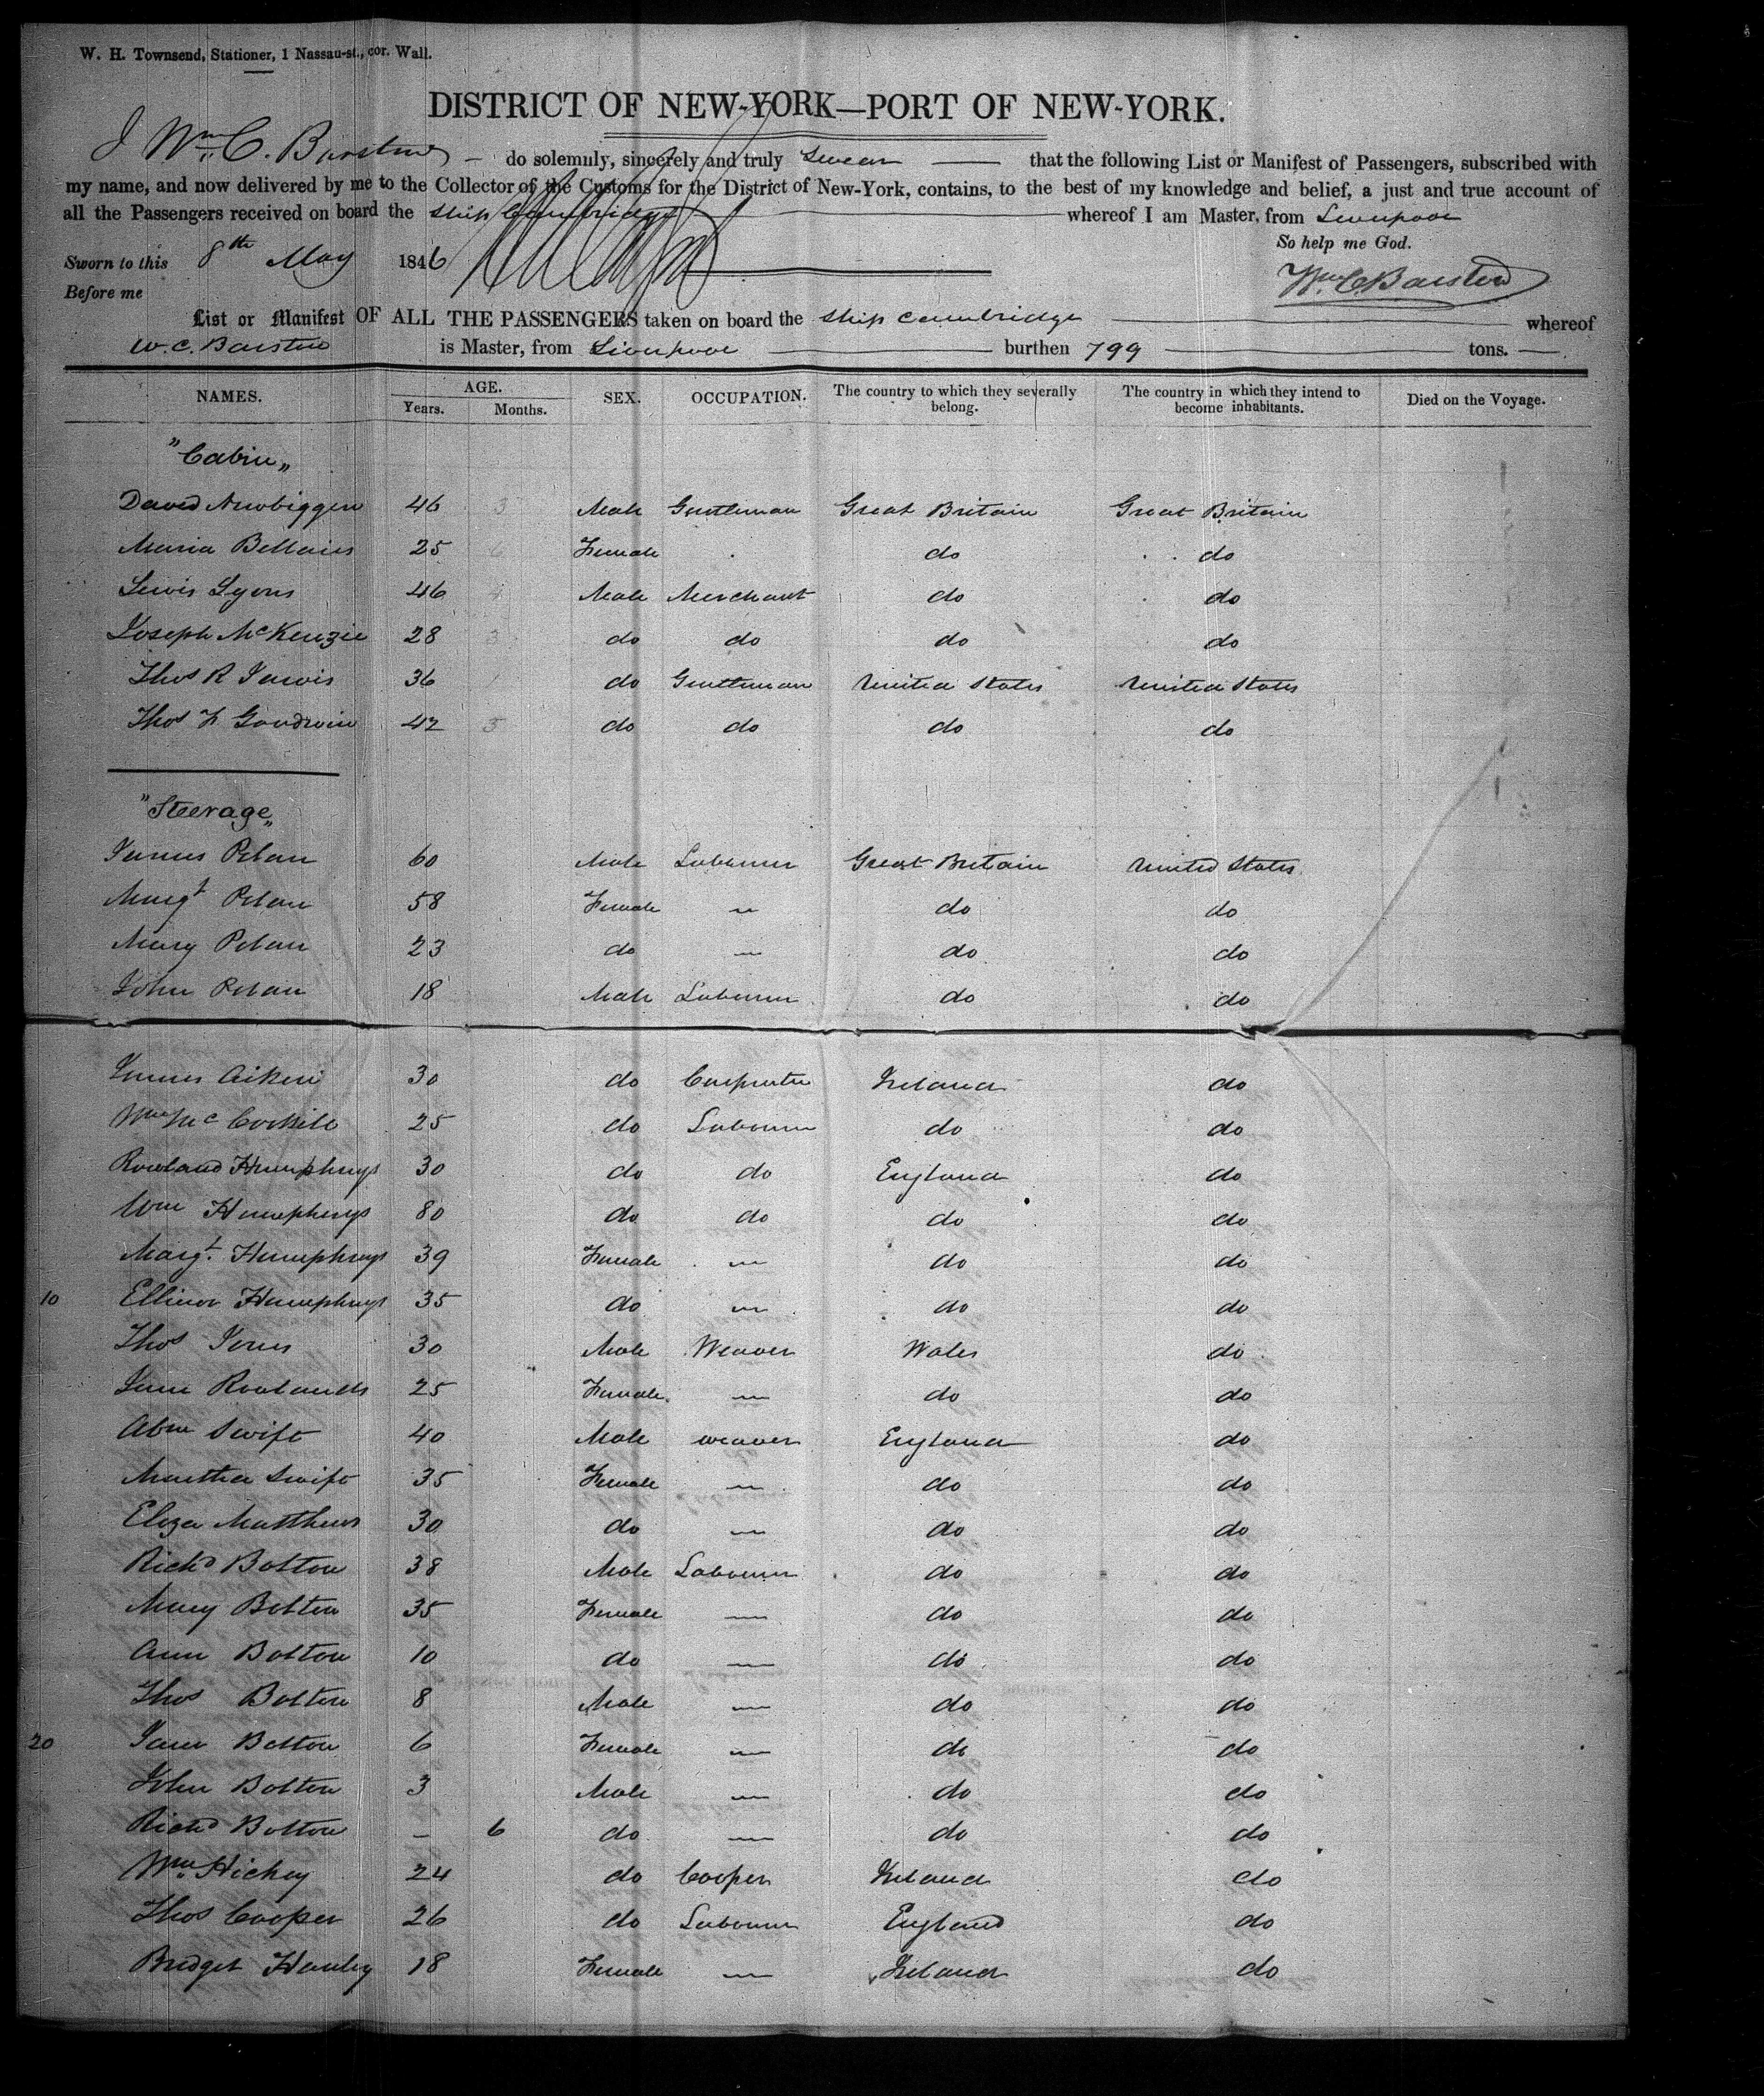 W. H. Townsend, Stationer, 1 Nassau-st., cor. Wall.
DISTRICT OF NEW-YORK—PORT OF NEW-YORK.
I Wm. C. Barstow – do solemnly, sincerely and truly swear — that the following List or Manifest of Passengers, subscribed with
my name, and now delivered by me to the Collector of the Customs for the District of New-York, contains, to the best of my knowledge and belief, a just and true account of
all the Passengers received on board the Ship Cambridge — whereof I am Master, from Liverpool
So help me God.
Sworn to this 8th May 1846
Wm C Barstow
Before me
List or Manifest OF ALL THE PASSENGERS taken on board the Ship Cambridge — whereof
W. C. Barstow is Master, from Liverpool — burthen 799 — tons.
NAMES. AGE. Years. Months. SEX. OCCUPATION. The country to which they severally belong. The country in which they intend to become inhabitants. Died on the Voyage.
"Cabin„
David Newbiggen 46 3 Male Gentleman Great Britain Great Britain
Maria Bellairs 25 6 Female do do
Lewis Lyons 46 4 Male Merchant do do
Joseph McKenzie 28 3 do do do do
Thos R Jarvis 36 1 do Gentleman United States United States
Thos F Goodwin 42 5 do do do do
"Steerage„
James Pelan 60 Male Labourer Great Britain United States
Margt Pelan 58 Female " do do
Mary Pelan 23 do — do do
John Pelan 18 Male Labourer do do
James Aiken 30 do Carpenter Ireland do
Wm Mc Corkill 25 do Labourer do do
Rowland Humphreys 30 do do England do
Wm Humphreys 80 do do do do
Margt. Humphreys 39 Female — do do
10 Ellinor Humphreys 35 do — do do
Thos Jones 30 Male Weaver Wales do
Jane Rowlands 25 Female — do do
Abm Swift 40 Male weaver England do
Martha Swift 35 Female — do do
Eliza Matthews 30 do — do do
Richd Bolton 38 Male Labourer do do
Mary Bolton 35 Female — do do
Ann Bolton 10 do — do do
Thos Bolton 8 Male — do do
20 Jane Bolton 6 Female — do do
John Bolton 3 Male — do do
Richd Bolton — 6 do — do do
Wm Hickey 24 do Cooper Ireland do
Thos Cooper 26 do Labourer England do
Bridget Hanley 18 Female — Ireland do